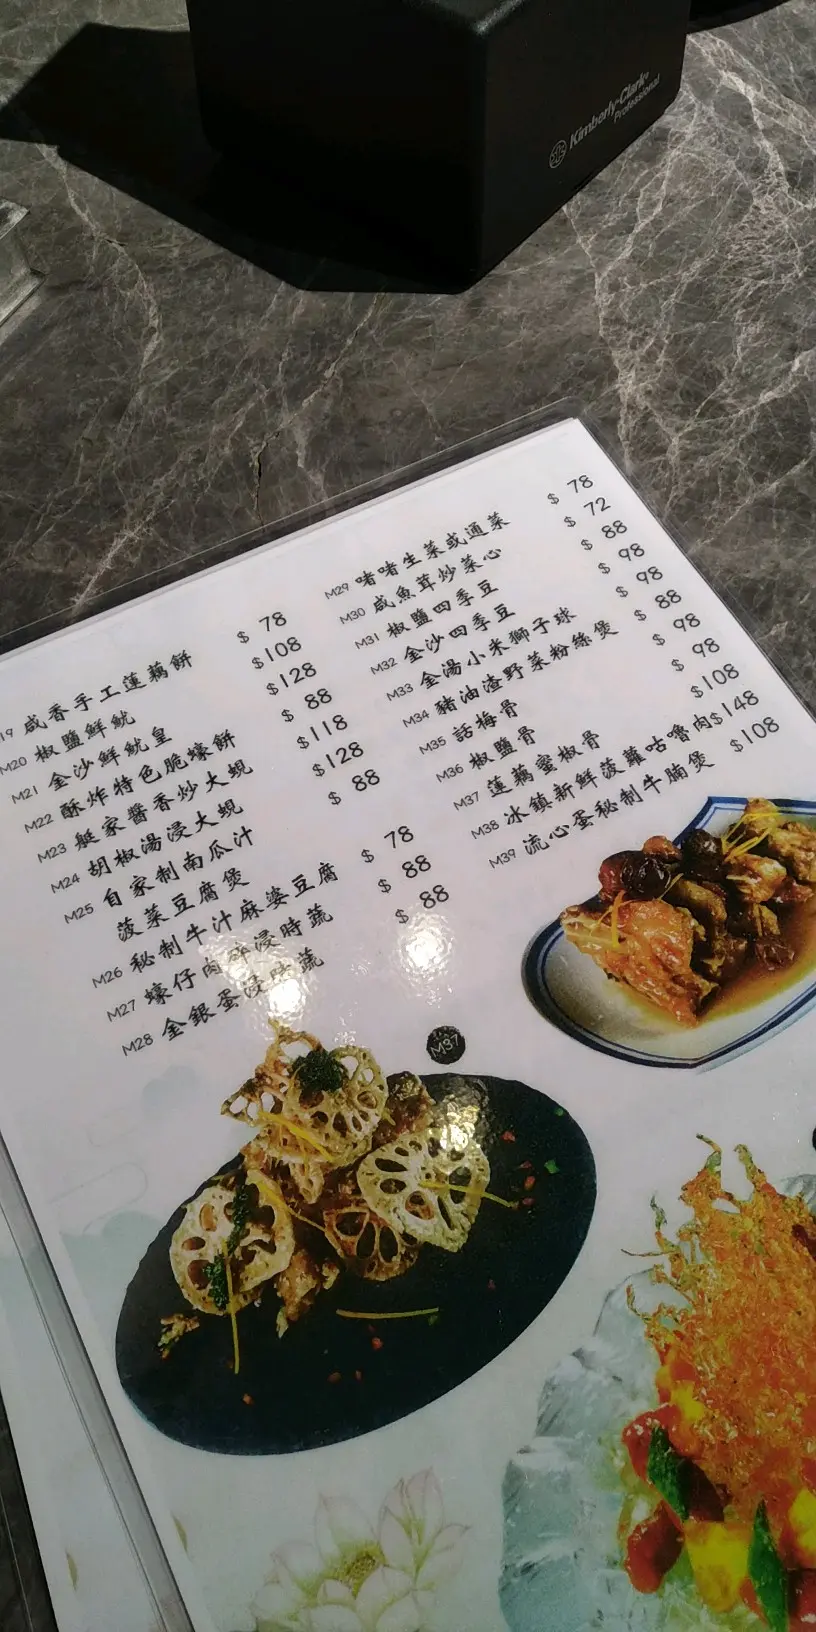 Kimberly-Clark
Professional
19 咸香手工蓮藕餅 $ 78
M20 椒鹽鮮魷 $108
M21 金沙鮮魷皇 $128
M22 酥炸特色脆蠔餅 $ 88
M23 艇家醬香炒大蜆 $118
M24 胡椒湯浸大蜆 $128
M25 自家制南瓜汁
菠菜豆腐煲 $ 88
M26 秘制牛汁麻婆豆腐 $ 78
M27 蠔仔肉碎浸時蔬 $ 88
M28 金銀蛋浸時蔬 $ 88
M29 啫啫生菜或通菜 $ 78
M30 咸魚茸炒菜心 $ 72
M31 椒鹽四季豆 $ 88
M32 金沙四季豆 $ 98
M33 金湯小米獅子球 $ 98
M34 豬油渣野菜粉絲煲 $ 88
M35 話梅骨 $ 98
M36 椒鹽骨 $ 98
M37 蓮藕蜜椒骨 $108
M38 冰鎮新鮮菠蘿咕嚕肉 $148
M39 流心蛋秘制牛腩煲 $108
M37